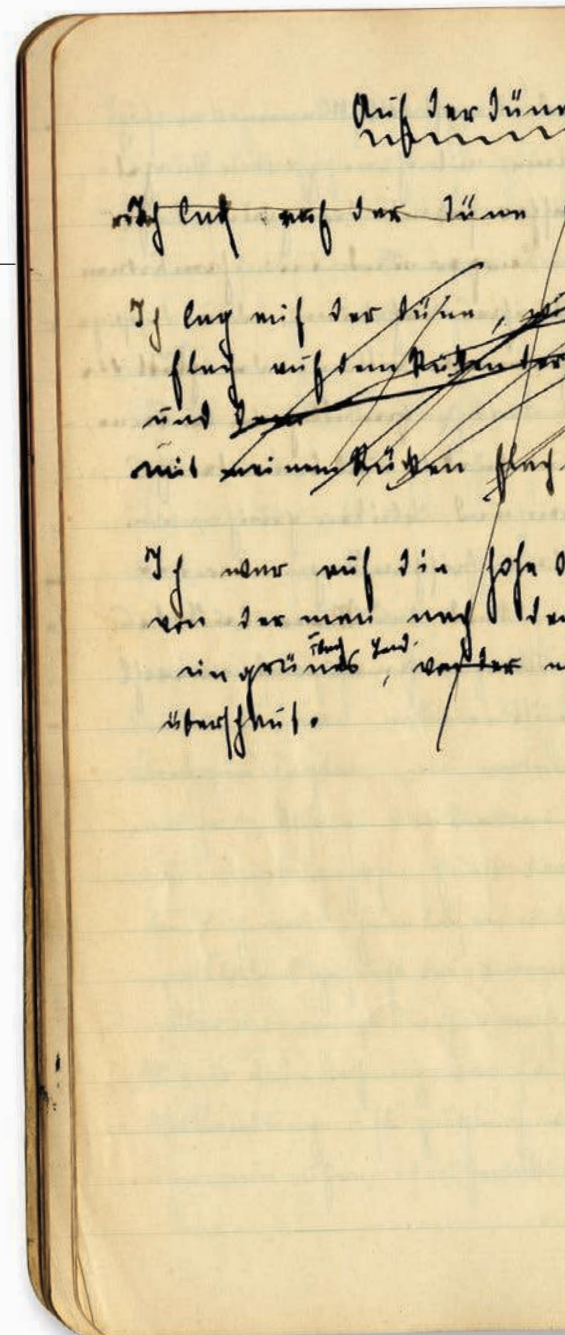 Auf der Düne
Ich lag auf der Düne
Ich lag auf der Düne,
flach auf dem Rücken der
und dem
mit meinem Rücken flach
Ich war auf die hohe
von der man nach
ein grünes, von der
überschaut.